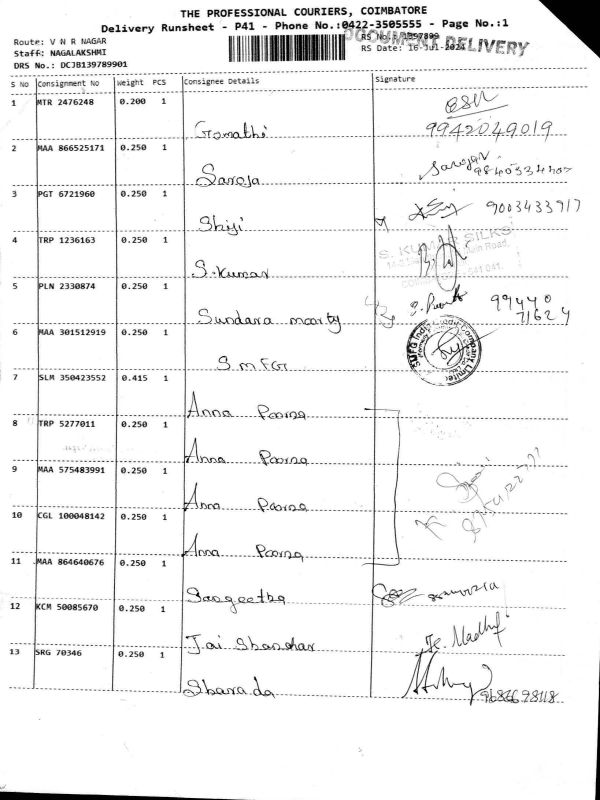 THE PROFESSIONAL COURIERS, COIMBATORE
Delivery Runsheet - P41 - Phone No.:0422-3505555 - Page No.:1
Route: V N R NAGAR
Staff: NAGALAKSHMI
DRS No.: DCJB139789901
RS Date: 16-Jul-2024
DOCUMENT DELIVERY
S No Consignment No Weight PCS Consignee Details Signature
1 MTR 2476248 0.200 1
Gomathi 9942049019
2 MAA 866525171 0.250 1
Saroja Sarojan
3 PGT 6721960 0.250 1
Shiji 9003433917
4 TRP 1236163 0.250 1
S. Kumar S. KUMAR SILKS
5 PLN 2330874 0.250 1
Sundara moorty 99440 71624
6 MAA 301512919 0.250 1
SMFG
7 SLM 350423552 0.415 1
Anna Poorna
8 TRP 5277011 0.250 1
Anna Poorna
9 MAA 575483991 0.250 1
Anna Poorna
10 CGL 100048142 0.250 1
Anna Poorna
11 MAA 864640676 0.250 1
Sangeetha
12 KCM 50085670 0.250 1
Jai Shankar
13 SRG 70346 0.250 1
Sharada